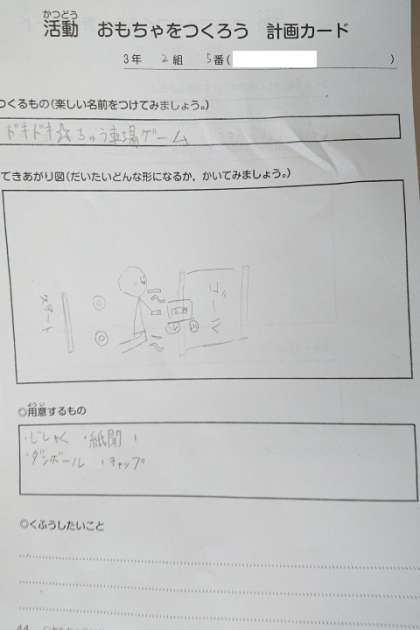 かつどう
活動 おもちゃをつくろう 計画カード
3年 2組 5番( )
つくるもの(楽しい名前をつけてみましょう。)
ドキドキ☆ちゅう車場ゲーム
てきあがり図(だいたいどんな形になるか，かいてみましょう。)
スタート
ゴール
ようい
◎用意するもの
・じしゃく ・紙聞 ・
・ダンボール ・キャップ
◎くふうしたいこと
44